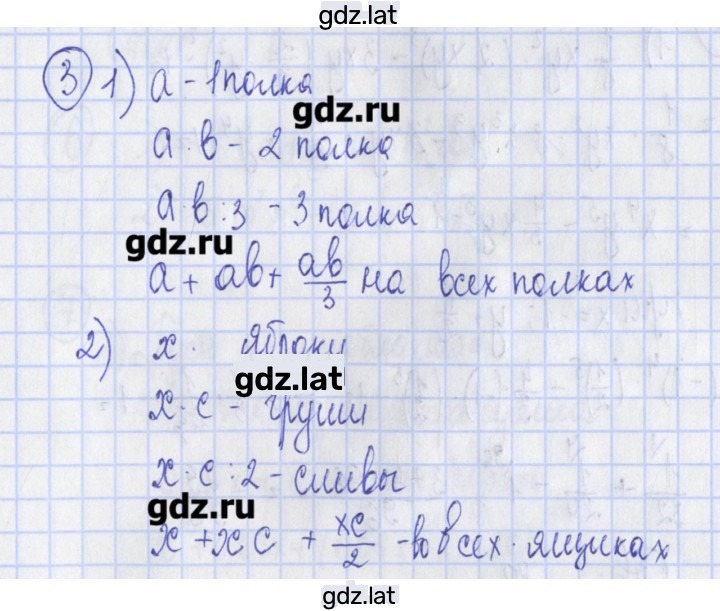 gdz.lat
3 1) a - 1 полка
gdz.ru
a·b - 2 полка
a·b:3 - 3 полка
gdz.ru
a + ab + ab/3 на всех полках
2) x · яблоки
gdz.lat
x·c - груши
x·c:2 - сливы
gdz.ru
x + xc + xc/2 - во всех ящиках
gdz.lat